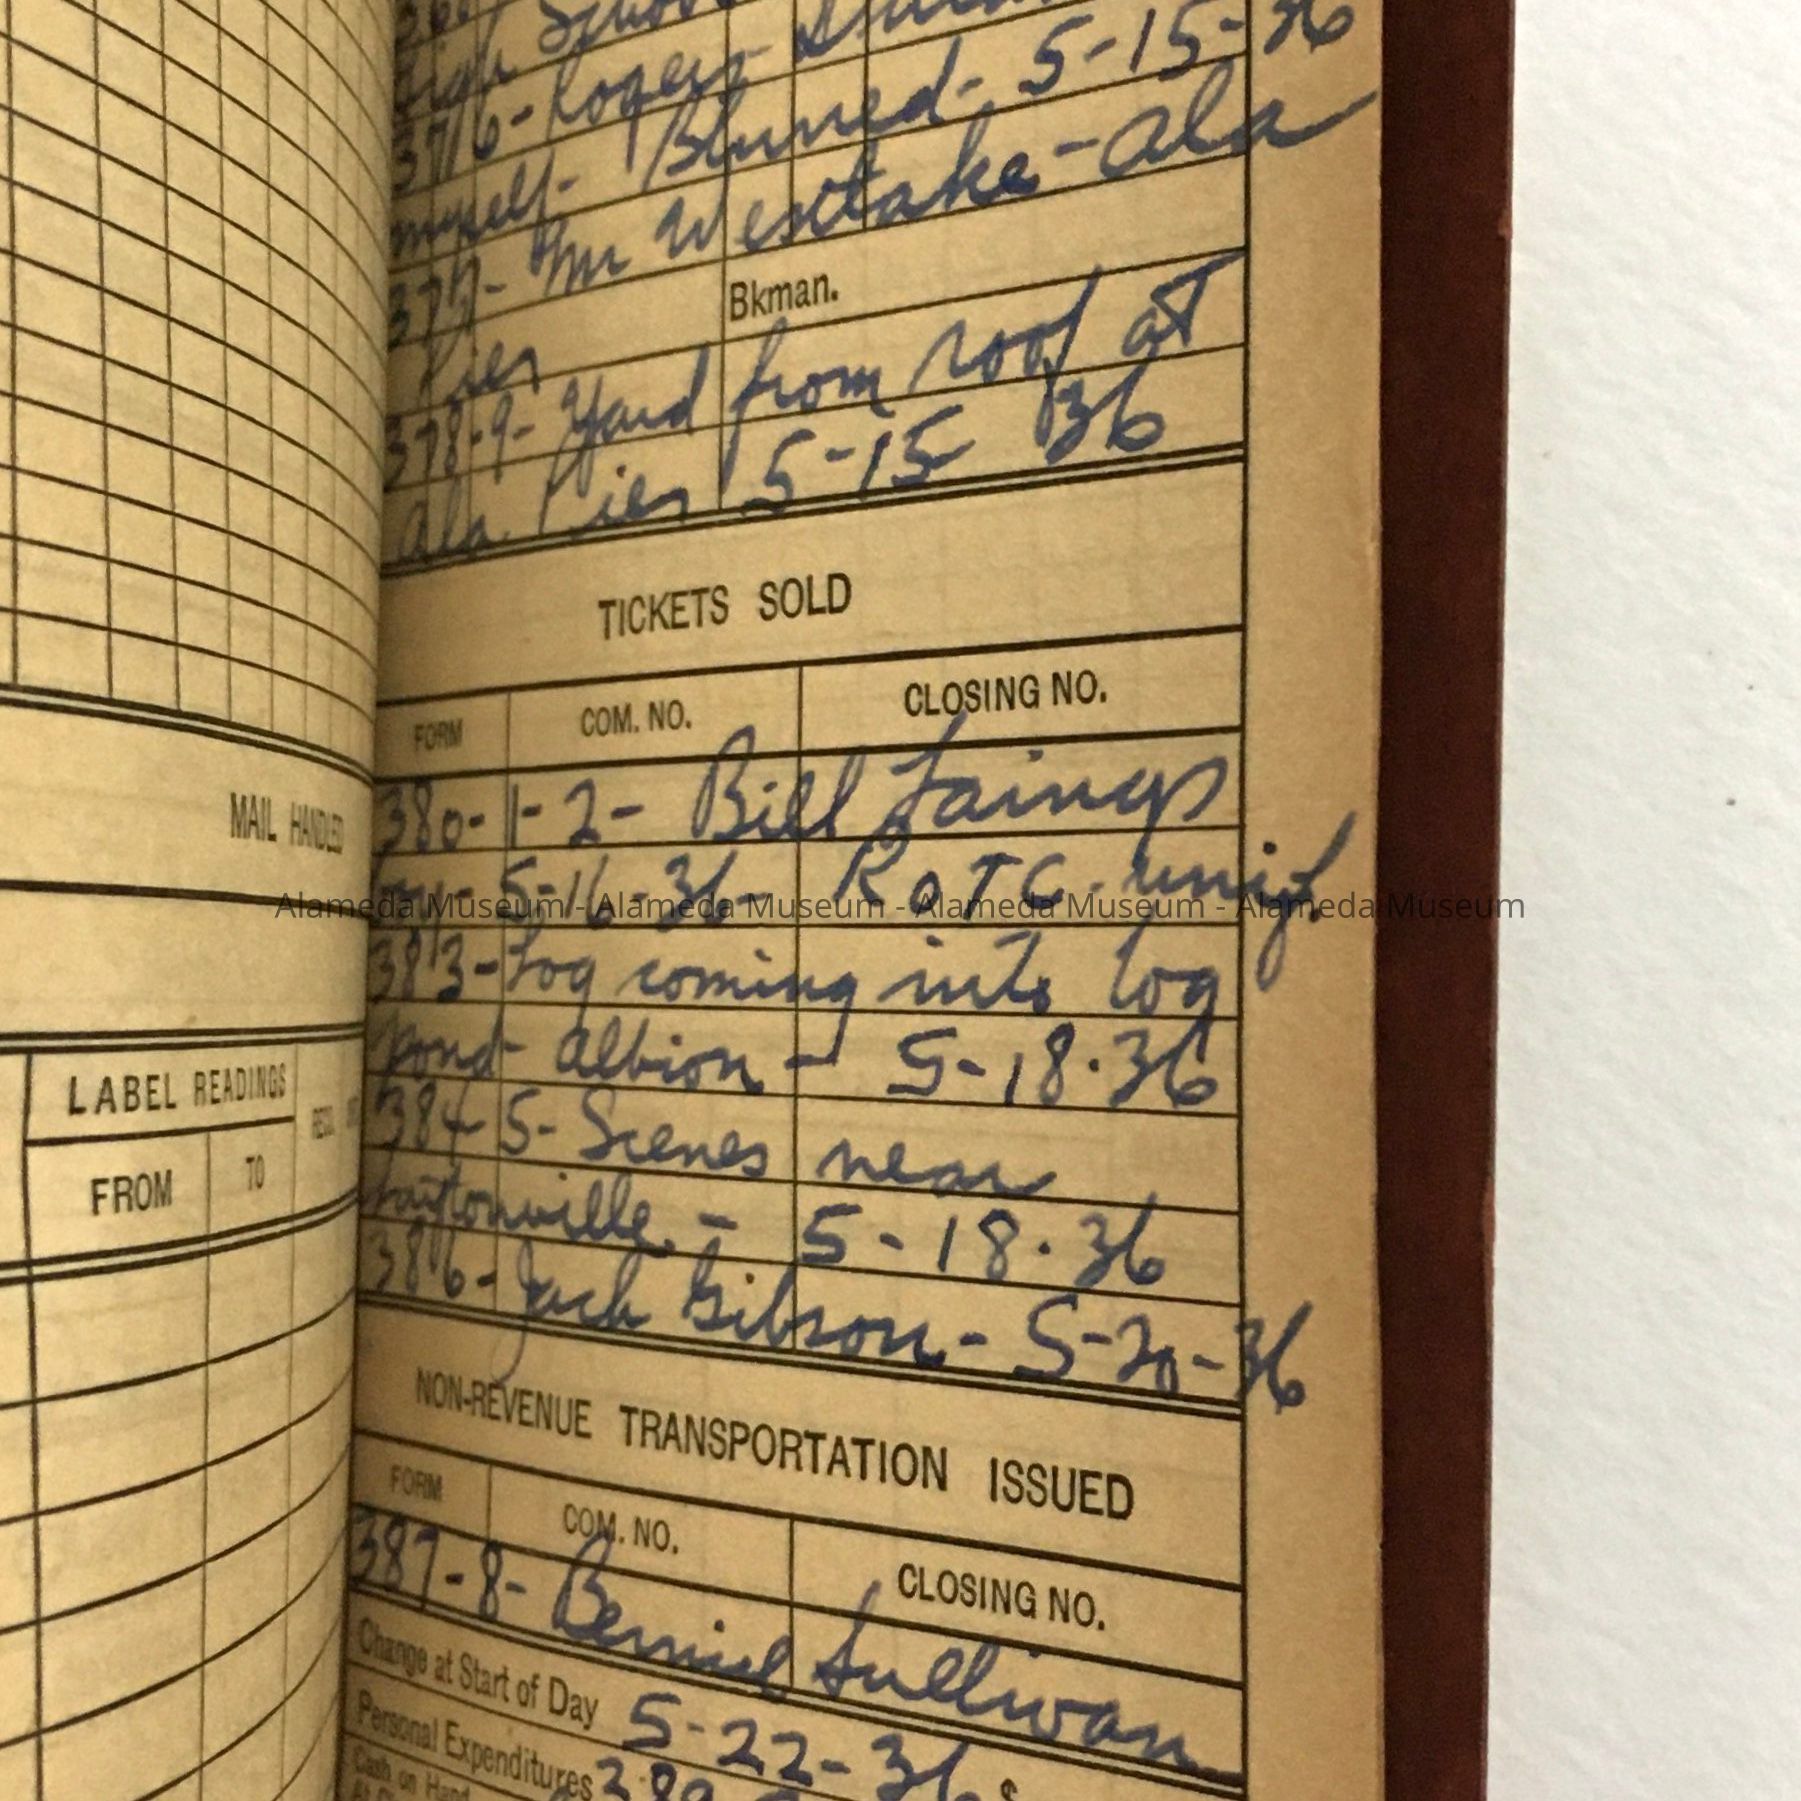 MAIL HANDLED
LABEL READINGS
FROM
TO
High School
376- Roger
myself- Blurred- 5-15-36
377- Mr Westlake - Ala
Bkman.
Pier
378-9- Yard from roof at
Ala. Pier 5-15-36
TICKETS SOLD
FORM
COM. NO.
CLOSING NO.
380-1-2- Bill Laings
5-16-36- ROTC- unif.
383- Log coming into log
pond- Albion - 5-18-36
384-5- Scenes near
Laytonville. - 5-18-36
386- Jack Gibson- 5-20-36
NON-REVENUE TRANSPORTATION ISSUED
FORM
COM. NO.
CLOSING NO.
387-8- Bernice Sullivan
Change at Start of Day
5-22-36
Personal Expenditures
389
Cash on Hand
Alameda Museum - Alameda Museum - Alameda Museum - Alameda Museum